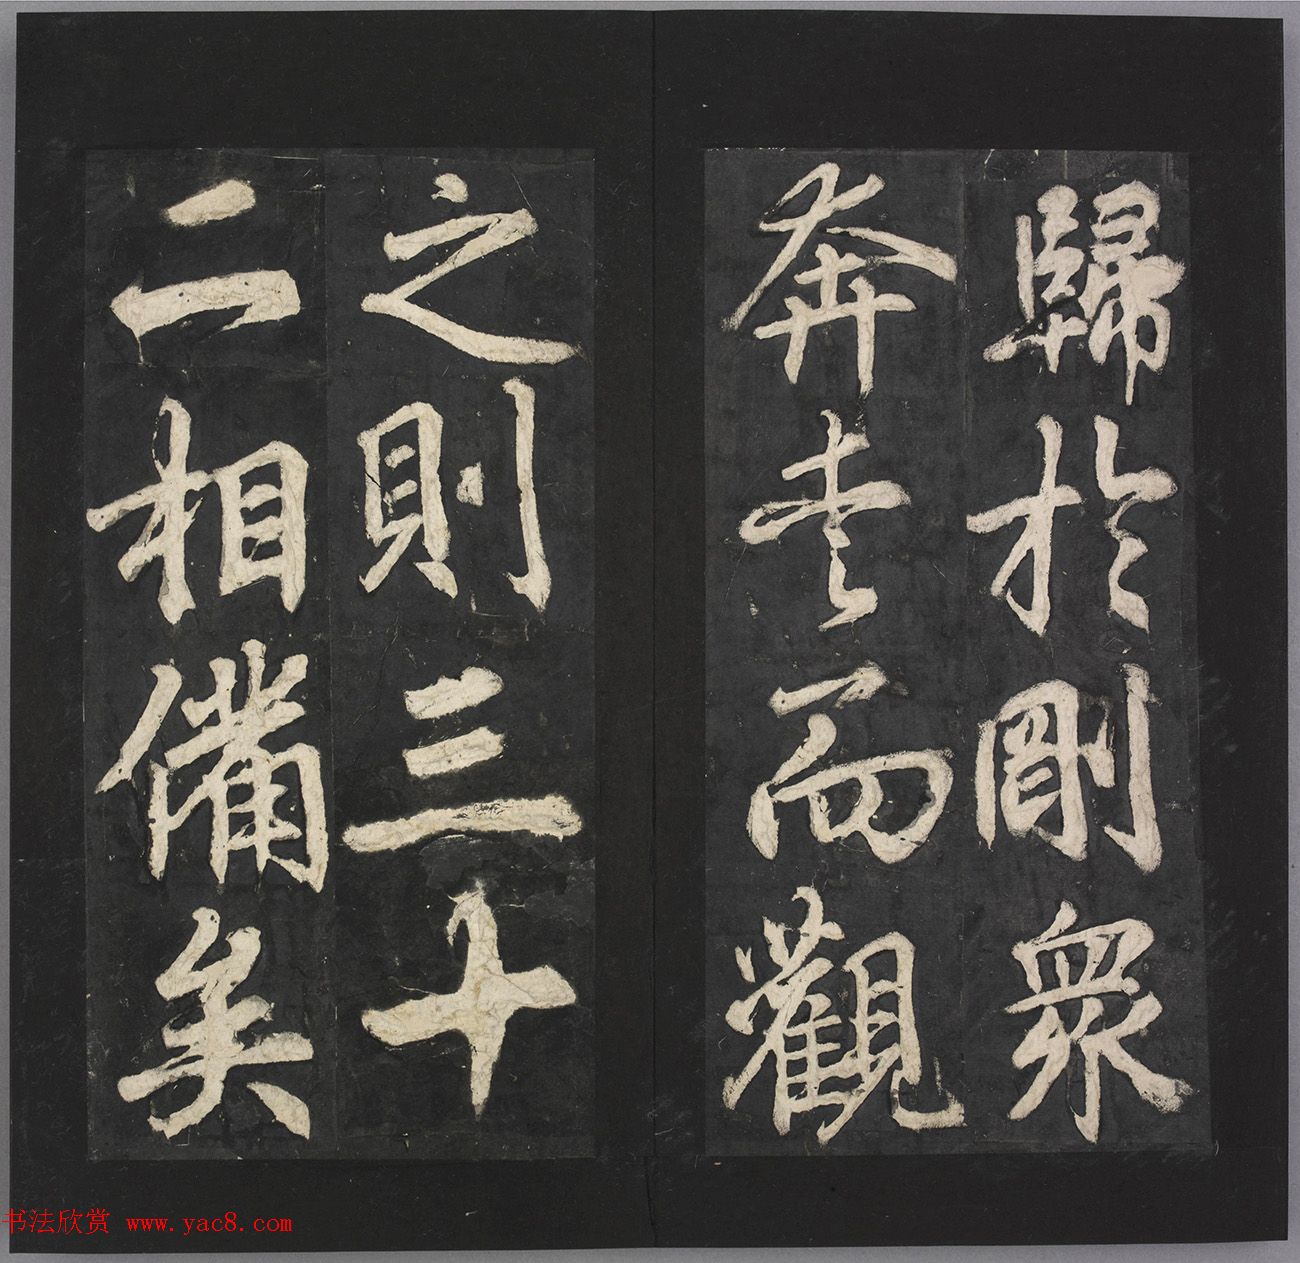 歸於剛眾
奔走而觀
之則三十
二相備矣
书法欣赏 www.yac8.com